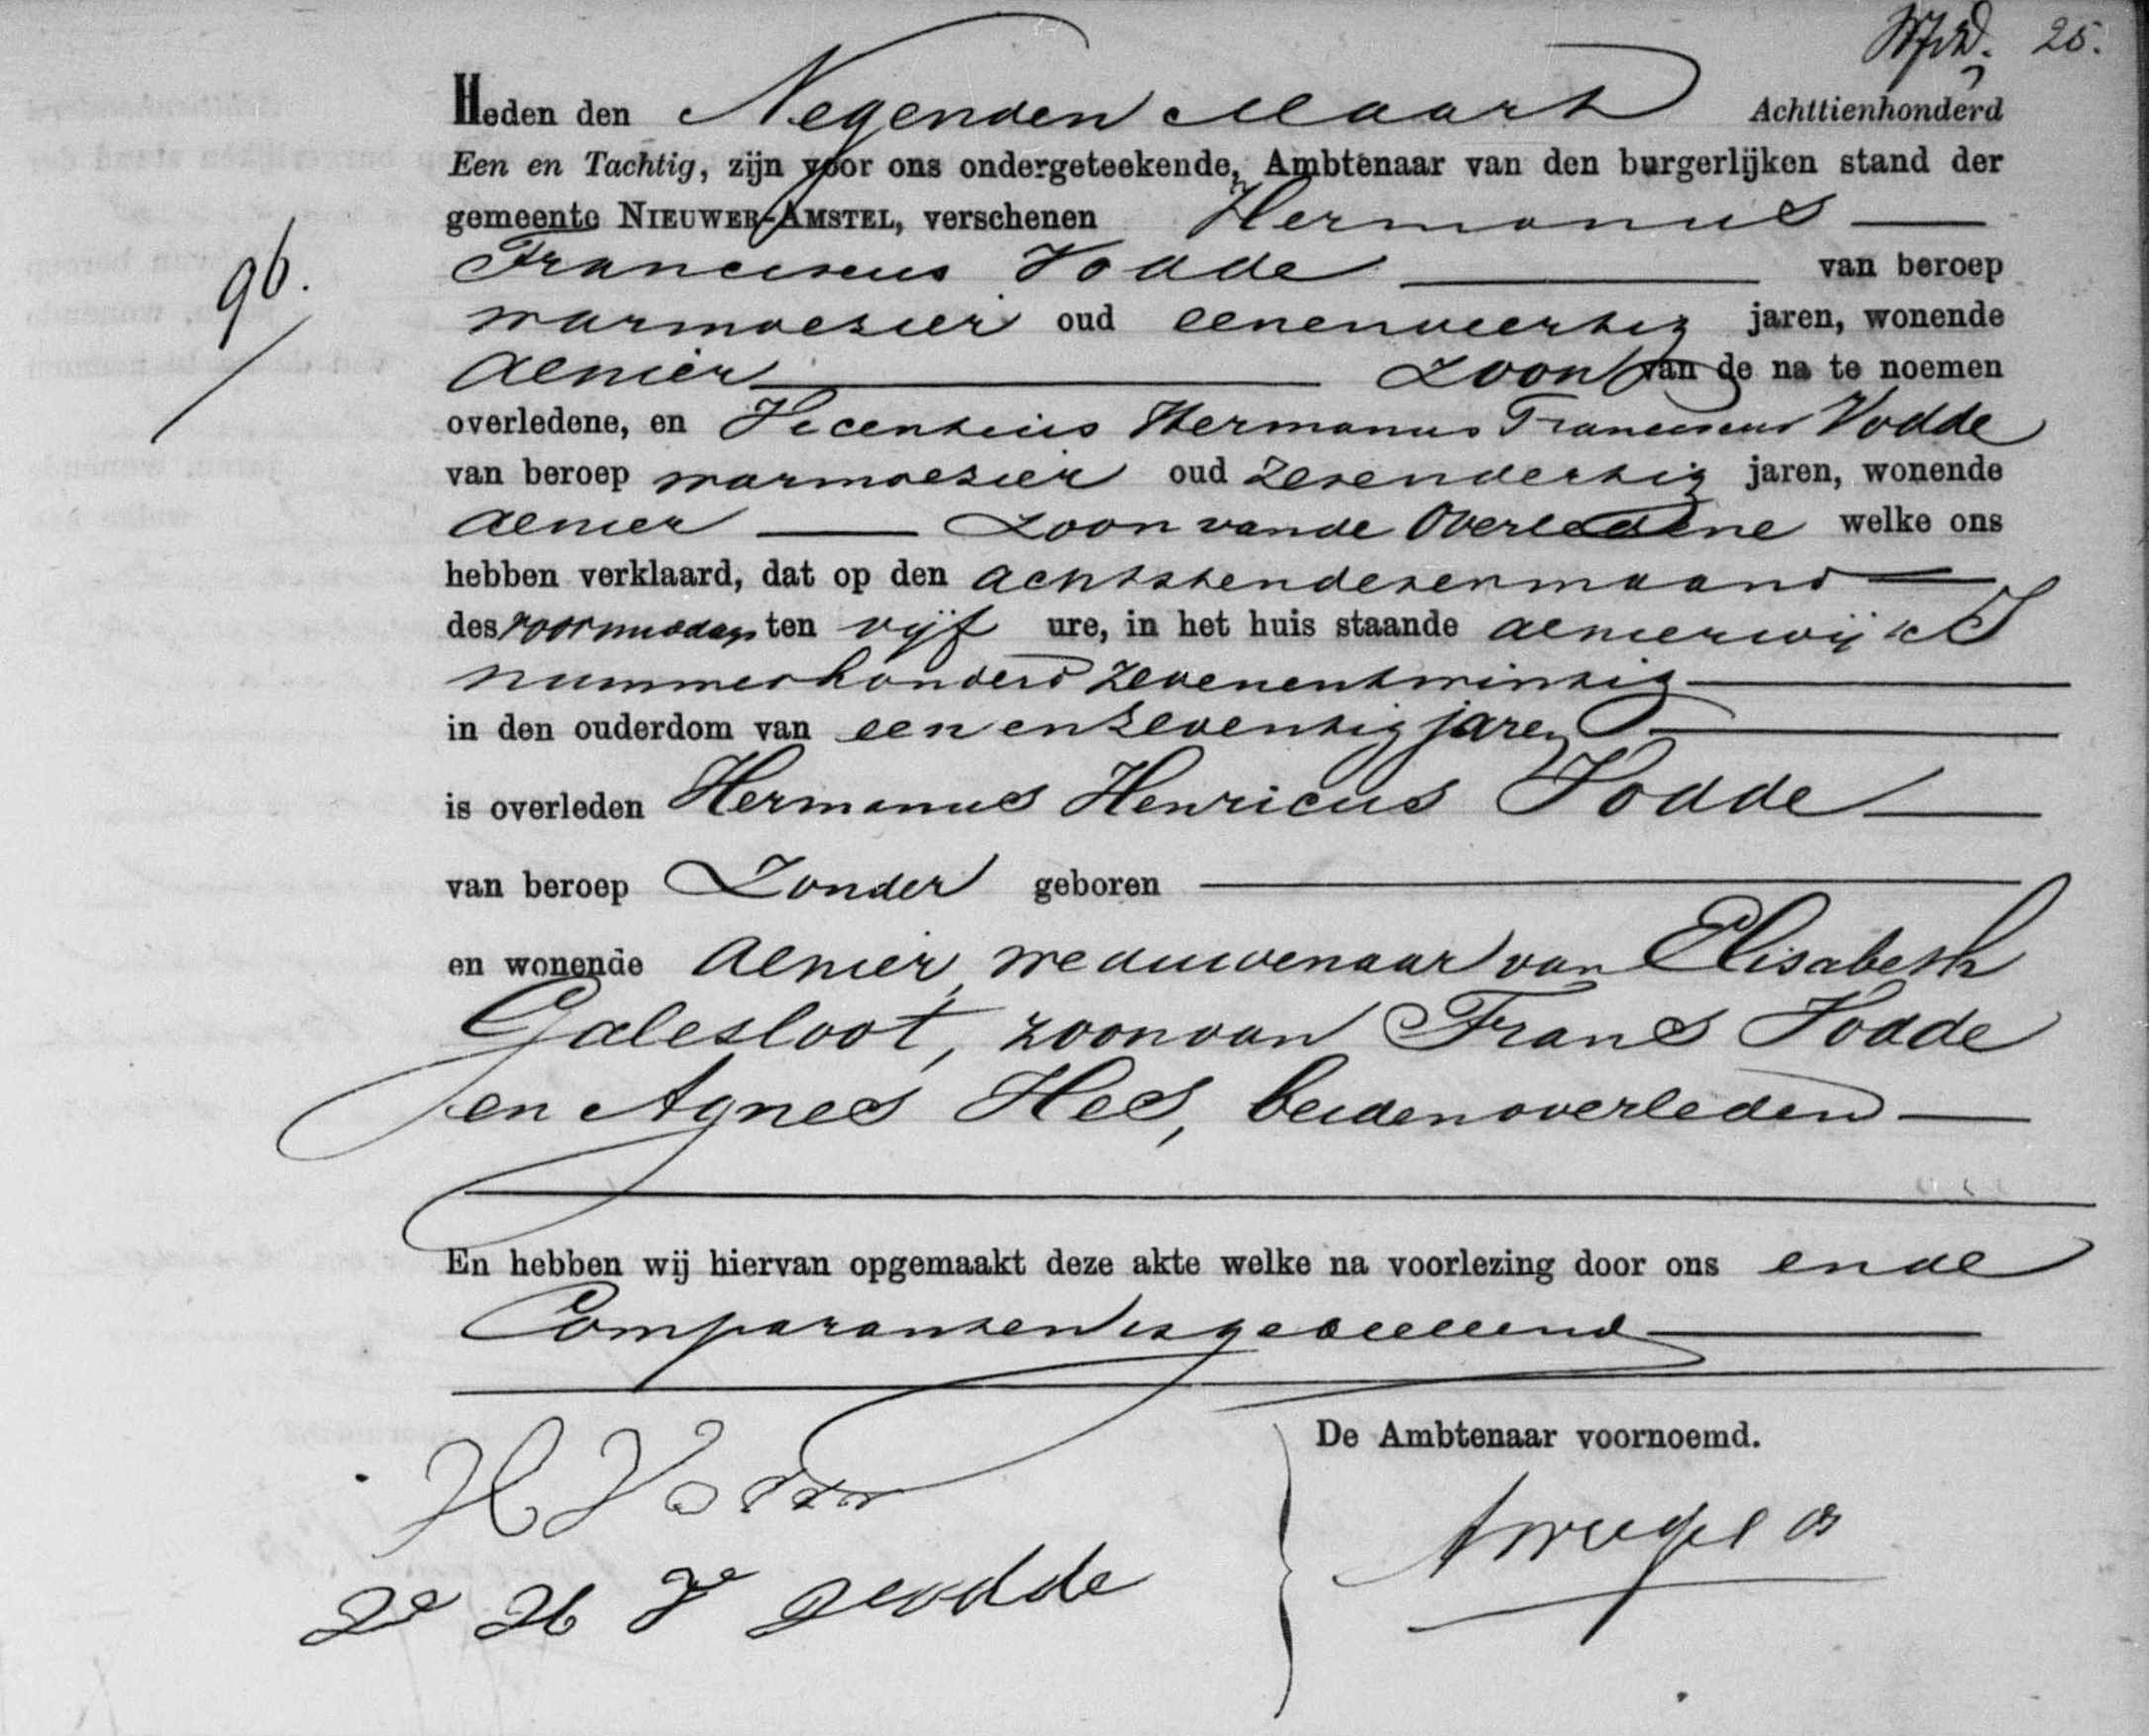 25.
Heden den Negenden Maart Achttienhonderd
Een en Tachtig, zijn voor ons ondergeteekende, Ambtenaar van den burgerlijken stand der
gemeente NIEUWER-AMSTEL, verschenen Hermanus
Franciscus Vodde van beroep
96.
warmoesier oud eenenveertig jaren, wonende
alhier zoon van de na te noemen
overledene, en Hermanus Franciscus Vodde
van beroep warmoesier oud zesendertig jaren, wonende
alhier zoon van de Overledene welke ons
hebben verklaard, dat op den achtsten dezer maand
des voormiddags ten vijf ure, in het huis staande alhier wijk
nummer honderd zevenentwintig
in den ouderdom van een en zeventig jaren
is overleden Hermanus Henricus Vodde
van beroep Zonder geboren
en wonende alhier, weduwenaar van Elisabeth
Galesloot, zoon van Frans Vodde
en Agnes Hes, beiden overleden
En hebben wij hiervan opgemaakt deze akte welke na voorlezing door ons en de
Comparanten is geteekend
De Ambtenaar voornoemd.
H Vodde
Vodde